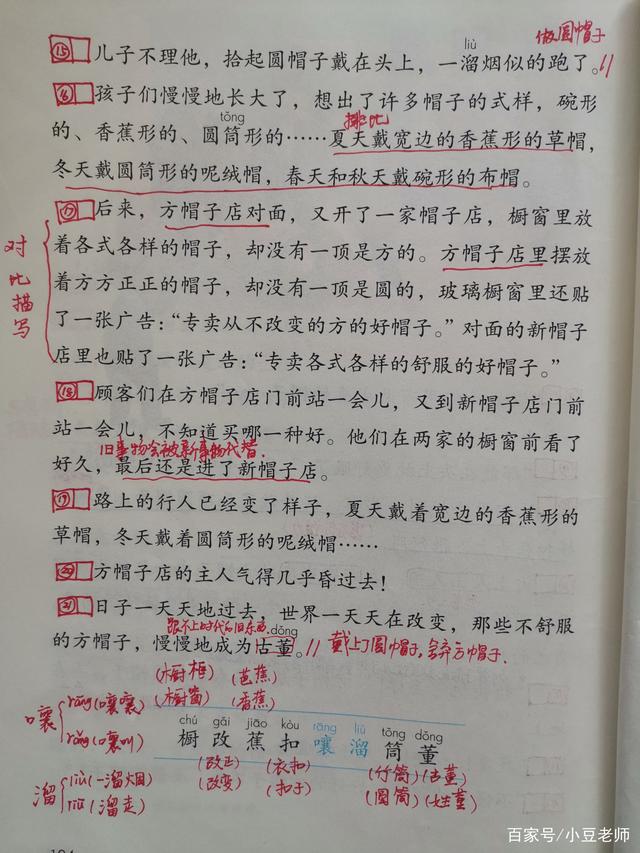 做圆帽子
liù
⑮儿子不理他，拾起圆帽子戴在头上，一溜烟似的跑了。//
⑯孩子们慢慢地长大了，想出了许多帽子的式样，碗形
tǒng 排比
的、香蕉形的、圆筒形的……夏天戴宽边的香蕉形的草帽，
冬天戴圆筒形的呢绒帽，春天和秋天戴碗形的布帽。
⑰后来，方帽子店对面，又开了一家帽子店，橱窗里放
着各式各样的帽子，却没有一顶是方的。方帽子店里摆放
着方方正正的帽子，却没有一顶是圆的，玻璃橱窗里还贴
了一张广告：“专卖从不改变的方的好帽子。”对面的新帽子
店里也贴了一张广告：“专卖各式各样的舒服的好帽子。”
对比描写
⑱顾客们在方帽子店门前站一会儿，又到新帽子店门前
站一会儿，不知道买哪一种好。他们在两家的橱窗前看了
旧事物会被新事物代替.
好久，最后还是进了新帽子店。
⑲路上的行人已经变了样子，夏天戴着宽边的香蕉形的
草帽，冬天戴着圆筒形的呢绒帽……
⑳方帽子店的主人气得几乎昏过去！
㉑日子一天天地过去，世界一天天在改变，那些不舒服
跟不上时代的旧东西. dǒng
的方帽子，慢慢地成为古董。// 戴上了圆帽子，舍弃方帽子.
(木厨柜) (芭蕉)
(橱窗) (香蕉)
嚷 rāng(嚷嚷)
rǎng(嚷叫)
chú gǎi jiāo kòu rāng liù tǒng dǒng
橱 改 蕉 扣 嚷 溜 筒 董
(改正) (衣扣) (竹筒) (古董)
(改变) (扣子) (圆筒) (姓董)
溜 liù(一溜烟)
liū(溜走)
百家号/小豆老师